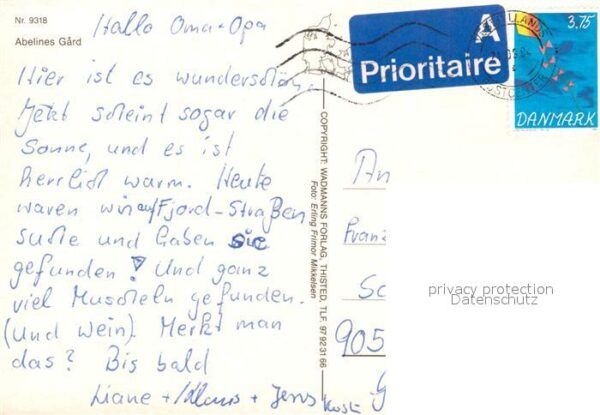 Nr. 9318
Abelines Gård
Hallo Oma + Opa
Hier ist es wunderschön.
Jetzt scheint sogar die
Sonne, und es ist
herrlich warm. Heute
waren wir auf Fjord-Straßen
suche und haben sie
gefunden! Und ganz
viel Muscheln gefunden.
(und Wein). Merkt man
das? Bis bald
Liane + Klaus + Jens
COPYRIGHT: WADMANNS FORLAG, THISTED, TLF. 97 92 31 66
Foto: Erling Frimor Mikkelsen
A
Prioritaire
3.75
DANMARK
An
Franz
Sc
905
privacy protection
Datenschutz